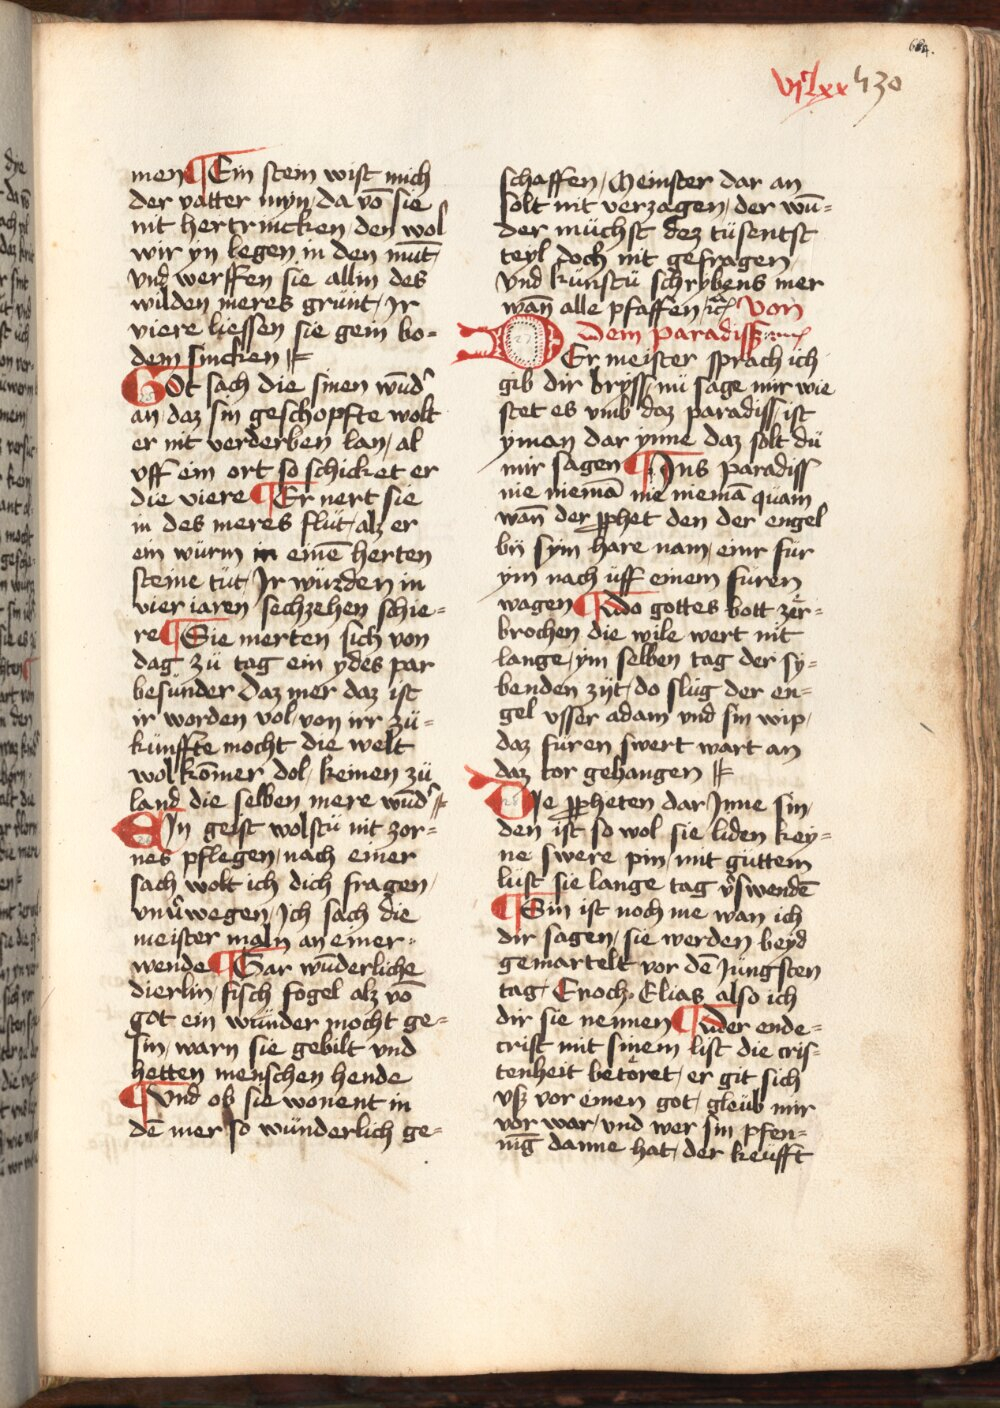 684.
vijlxx 430
men ¶ Ein stein wist mich
der vatter myn / da vō sie
nit hertrincken / den wol
wir yn legen in den mūt /
vnd werffen sie allin des
wilden meres grünt / Ir
viere liessen sie gein bo-
dem sincken
GOt sach die sinen wūdʼ
an / daz sin geschopfte wolt
er nit verderben lan / al
vff ein ort so schicket er
die viere ¶ Er nert sie
in des meres flüt / alz er
ein würm in einē herten
steine tüt / Ir würden in
vier iaren sechzehen schie-
re ¶ Sie merten sich von
dag zü tag ein ydes par
besünder Daz mer daz ist
ir worden vol / von irr zü-
künffte mocht die welt
wol kōmer dol / keinen zü
land die selben mere wūdʼ
EIn geist wolstü nit zor-
nes pflegen / nach einer
sach wolt ich dich fragen /
vnuʼwegen / Ich sach die
meister maln an einer-
wende ¶ Gar wūderliche
dierlin / fisch fogel alz vō
got ein wünder mocht ge-
sin / warn sie gebilt vnd
hetten menschen hende
¶ Vnd ob sie wonent in
dē mer so wünderlich ge-
schaffen / Meinster dar an
solt nit verzagen / der wū-
der müchst dez tüsentst
teyl doch nit gefragen
Vnd künstü schrybens mer
wān alle pfaffen / rc̄ Von
dem paradiss
DEr meister sprach ich
gib dir bryss / nü sage mir wie
stet es vmb daz paradiss / ist
yman dar ynne daz solt dü
mir sagen ¶ Ins paradiss
nie niemā nie niemā quam
wān der ꝓphet den der engel
bij sym hare nam / einr für
ym nach üff einem füren
wagen ¶ Do gottes bott zer-
brochen die wile wert nit
lange / ym selben tag der sy-
benden zijt / do slüg der en-
gel vsser adam vnd sin wip /
daz füren swert wart an
daz tor gehangen
DIe ꝓpheten dar Inne sin /
den ist so wol sie liden key-
ne swere pin / mit güttem
lüst sie lange tag vʼswendē
¶ Sin ist noch me wan ich
dir sagen / sie werden beyd
gemartelt vor dē Jüngsten
tag / Enoch / Elias also ich
dir sie nennen ¶ Der ende-
crist mit sinem list die cris-
tenheit betöret / er git sich
vß vor einen got / gleüb mir
vor war / vnd wer sin pfen-
nīg danne hat / der keüfft